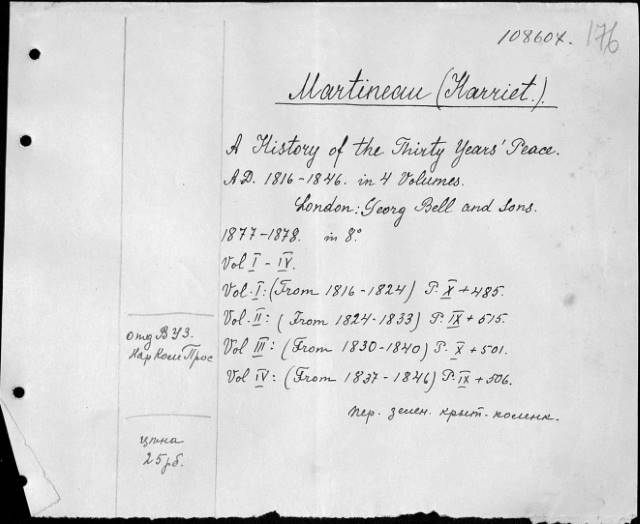 10860X. 176
Martineau (Harriet.).
A History of the Thirty Years' Peace.
A.D. 1816-1846. in 4 Volumes.
London: Georg Bell and Sons.
1877-1878. in 8°.
Vol I - IV.
Vol. I: (From 1816-1824) P. X + 485.
Vol. II: (From 1824-1833) P. IX + 515.
Vol III: (From 1830-1840) P. X + 501.
Vol IV: (From 1837-1846) P. IX + 506.
пер. зелен. крыт. коленк.
отд ВУЗ.
НарКомПрос
цена
25 рб.